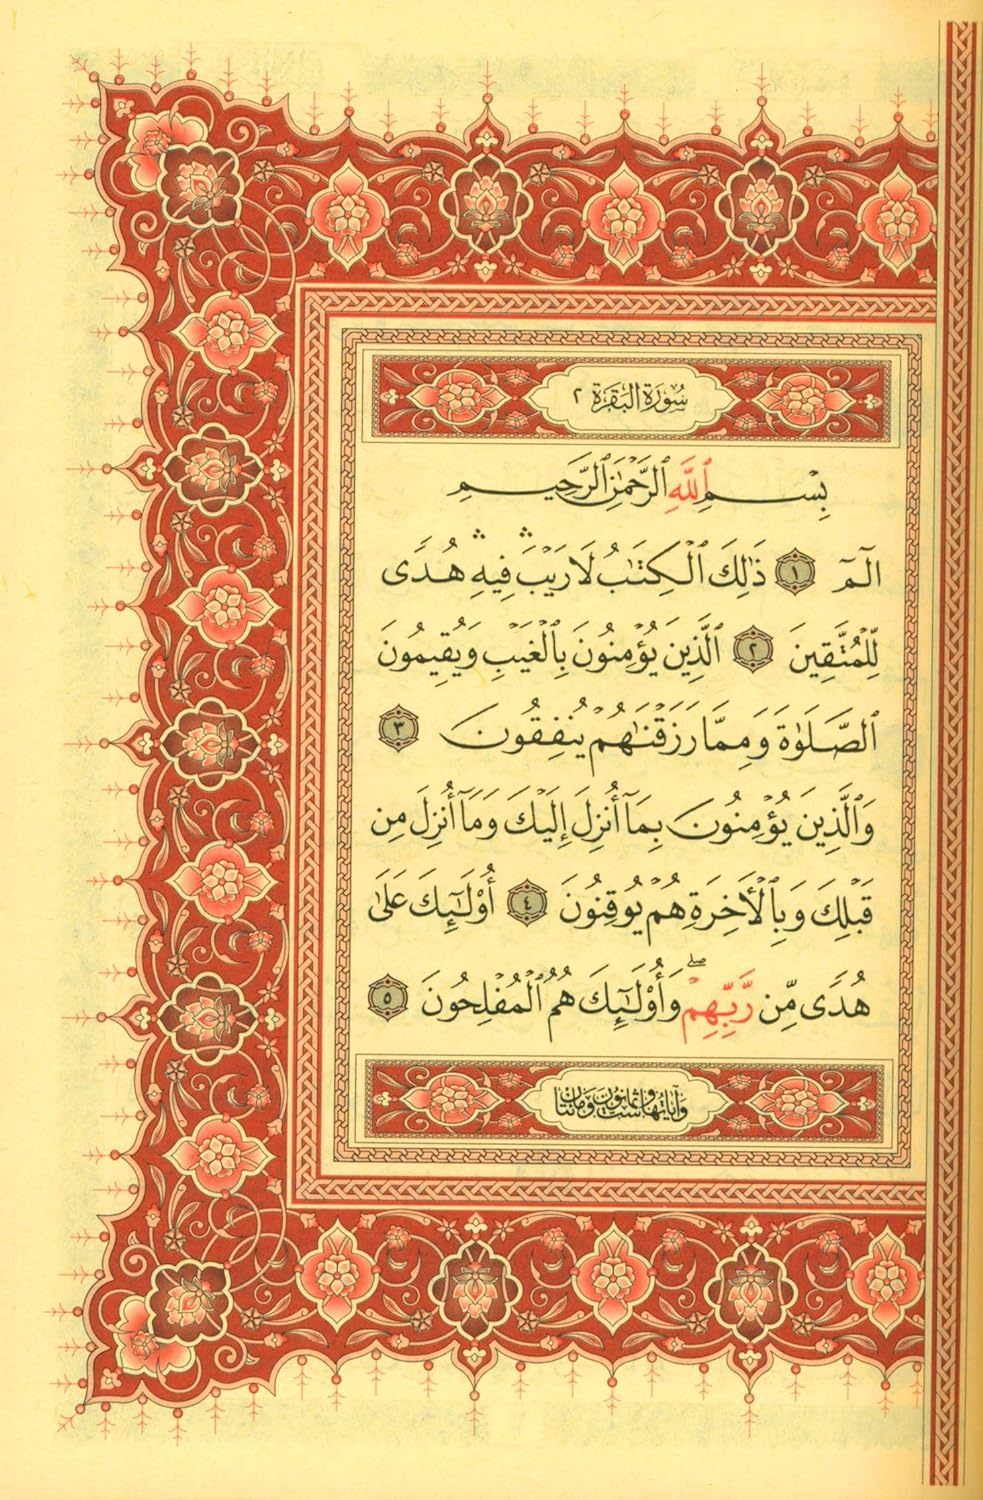 سُورَةُ البَقَرَة ٢
بِسْمِ ٱللَّهِ ٱلرَّحْمَٰنِ ٱلرَّحِيمِ
الٓمٓ ١ ذَٰلِكَ ٱلْكِتَٰبُ لَا رَيْبَ ۛ فِيهِ ۛ هُدًى
لِّلْمُتَّقِينَ ٢ ٱلَّذِينَ يُؤْمِنُونَ بِٱلْغَيْبِ وَيُقِيمُونَ
ٱلصَّلَوٰةَ وَمِمَّا رَزَقْنَٰهُمْ يُنفِقُونَ ٣
وَٱلَّذِينَ يُؤْمِنُونَ بِمَآ أُنزِلَ إِلَيْكَ وَمَآ أُنزِلَ مِن
قَبْلِكَ وَبِٱلْأَخِرَةِ هُمْ يُوقِنُونَ ٤ أُو۟لَٰٓئِكَ عَلَىٰ
هُدًى مِّن رَّبِّهِمْ ۖ وَأُو۟لَٰٓئِكَ هُمُ ٱلْمُفْلِحُونَ ٥
وَآيَاتُهَا سِتٌّ وَثَمَانُونَ وَمِائَتَان